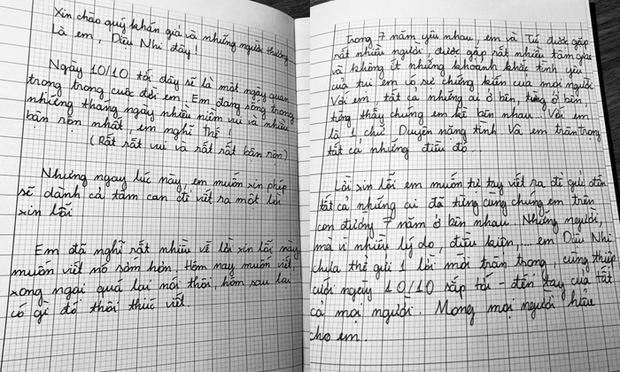 Xin chào quý khán giả và những người thương
Là em, Diệu Nhi đây!
Ngày 10/10 tới đây sẽ là một ngày quan
trọng trong cuộc đời em. Em đang sống trong
những tháng ngày nhiều niềm vui và nhiều
bận rộn nhất, em nghĩ thế!
(Rất rất vui và rất rất bận rộn)
Nhưng ngay lúc này, em muốn xin phép
sẽ dành cả tâm can để viết ra một lời
xin lỗi
Em đã nghĩ rất nhiều về lời xin lỗi này
muốn viết nó sớm hơn. Hôm nay muốn viết,
xong ngại quá lại nói thôi, hôm sau lại
có gì đó thôi thúc viết
Trong 7 năm yêu nhau, em và Tú được gặp
rất nhiều người, được gặp rất nhiều tấm gương
và không ít những khoảnh khắc tình yêu
của tụi em có sự chứng kiến của mọi người
Với em, tất cả những ai ở bên, từng ở bên
từng thấy chúng em kề bên nhau. Với em
là 1 chữ Duyên nặng tình và em trân trọng
tất cả những điều đó.
Lời xin lỗi em muốn tự tay viết ra để gửi đến
tất cả những ai đã từng cùng chúng em trên
con đường 7 năm ở bên nhau. Những người,
mà vì nhiều lý do, điều kiện, em Diệu Nhi
chưa thể gửi 1 lời mời trân trọng cùng thiệp
cưới ngày 10/10 sắp tới - đến tay của tất
cả mọi người. Mong mọi người hiểu
cho em.